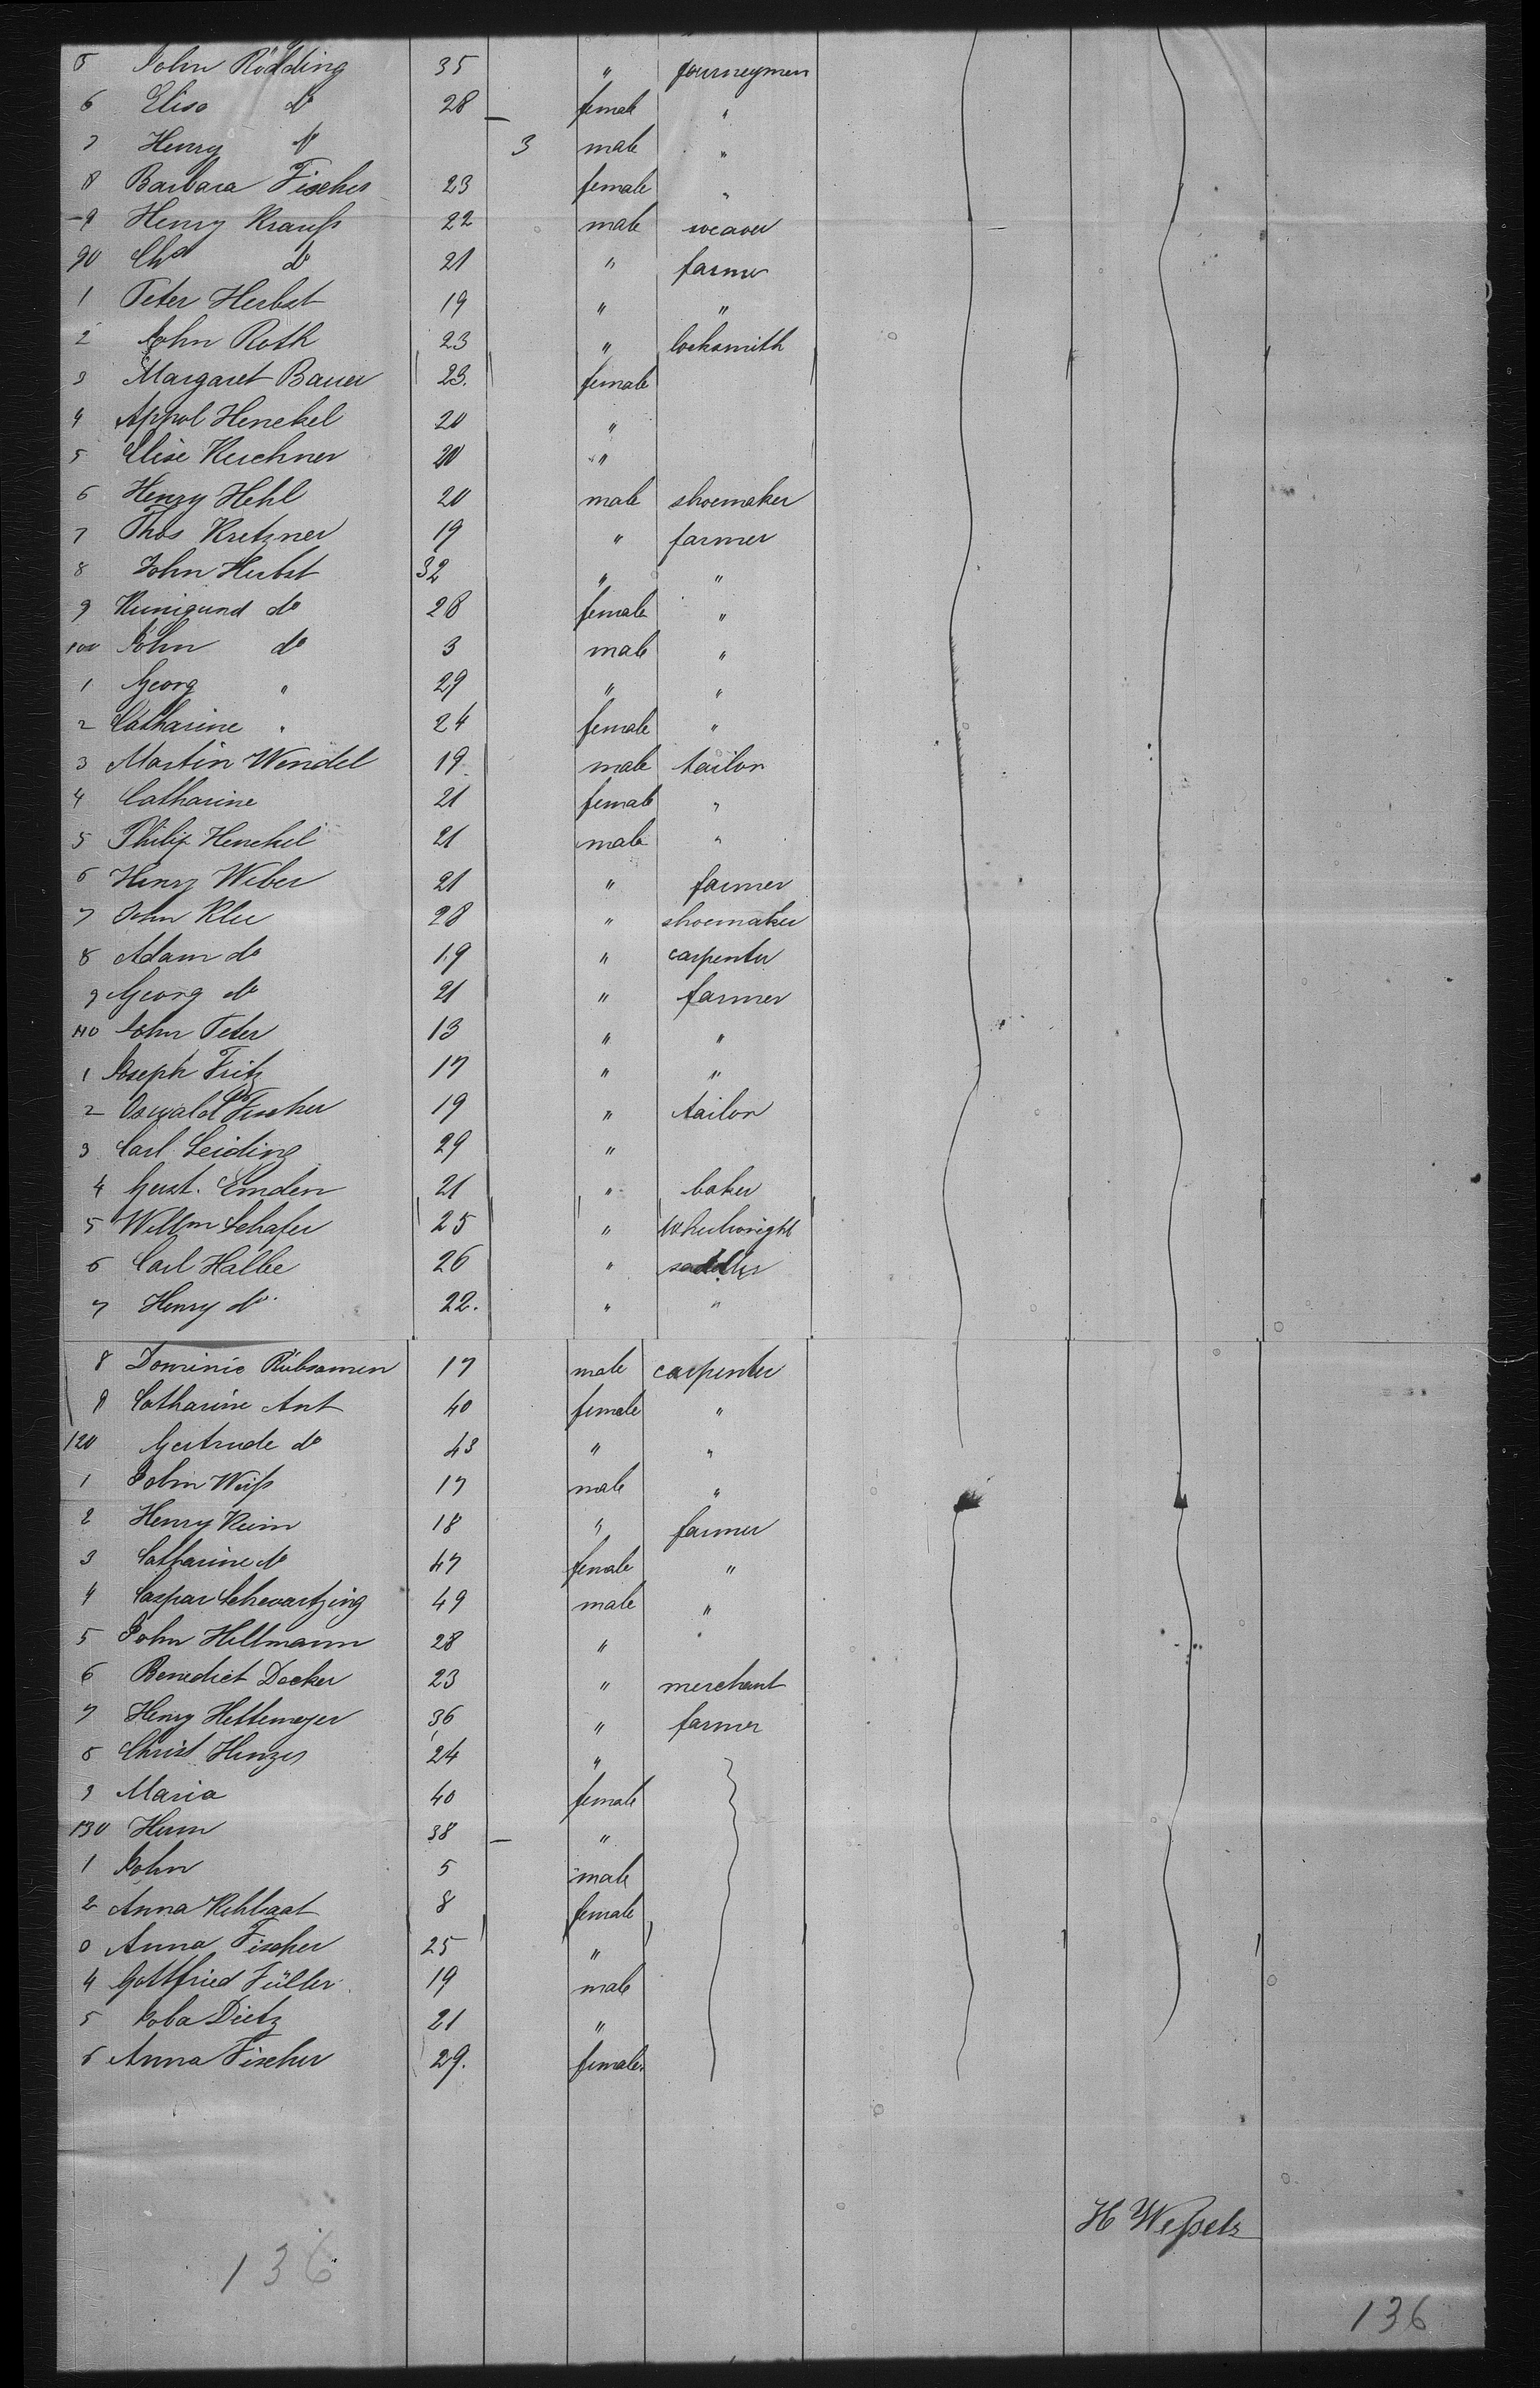 5 John Rödding 35 " journeymen
6 Elisa do 28 — female "
7 Henry do 3 male "
8 Barbara Fischer 23 female "
9 Henry Krauſs 22 male weaver
90 Chs do 21 " farmer
1 Peter Herbst 19 " "
2 John Roth 23 " locksmith
3 Margaret Bauer 23. female
4 Appol Henckel 20 "
5 Elise Kirchner 20 "
6 Henry Hehl 20 male shoemaker
7 Thos Kretzner 19 " farmer
8 John Herbst 32 " "
9 Kunigund do 28 female "
100 John do 3 male "
1 Georg " 29 " "
2 Catharine " 24 female "
3 Martin Wendel 19 male tailor
4 Catharine 21 female "
5 Philip Henckel 21 male "
6 Henry Weber 21 " farmer
7 John Klee 28 " shoemaker
8 Adam do 19 " carpenter
9 Georg do 21 " farmer
110 John Peter 13 " "
1 Joseph Fritz 17 " "
2 Oswald Fischer 19 " tailor
3 Carl Leiding 29 "
4 Gust. Emden 21 " baker
5 Willm Schafer 25 " wheelwright
6 Carl Halbe 26 " saddler
7 Henry do 22. " "
8 Dominic Rübsamen 17 male carpenter
9 Catharine Ant 40 female "
120 Gertrude do 43 " "
1 John Weiſs 17 male "
2 Henry Keim 18 " farmer
3 Catharine do 47 female "
4 Caspar Schwartzing 49 male "
5 John Hillmann 28 " "
6 Benedict Decker 23 " merchant
7 Henry Hettemeyer 36 " farmer
8 Christ Hinzes 24 "
9 Maria 40 female
130 Herm 38 — "
1 John 5 male
2 Anna 8 female
Anna Fischer 25 "
4 Gottfried Füller 19 male
5 Dietz 21 "
6 Anna Fischer 29. female
H Weſsels
136
136